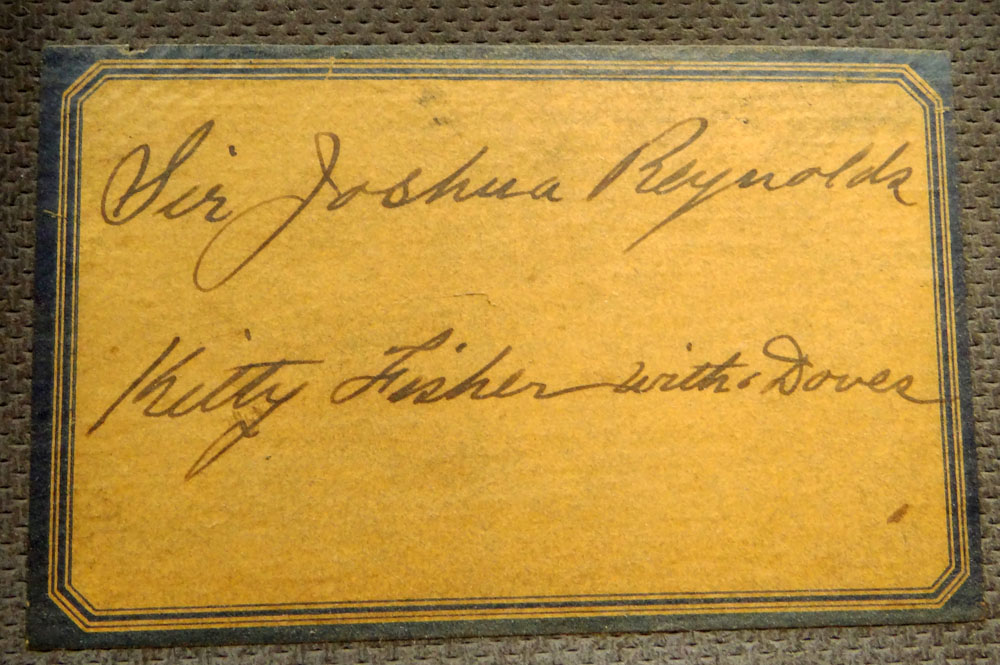 Sir Joshua Reynolds
Kitty Fisher with Doves